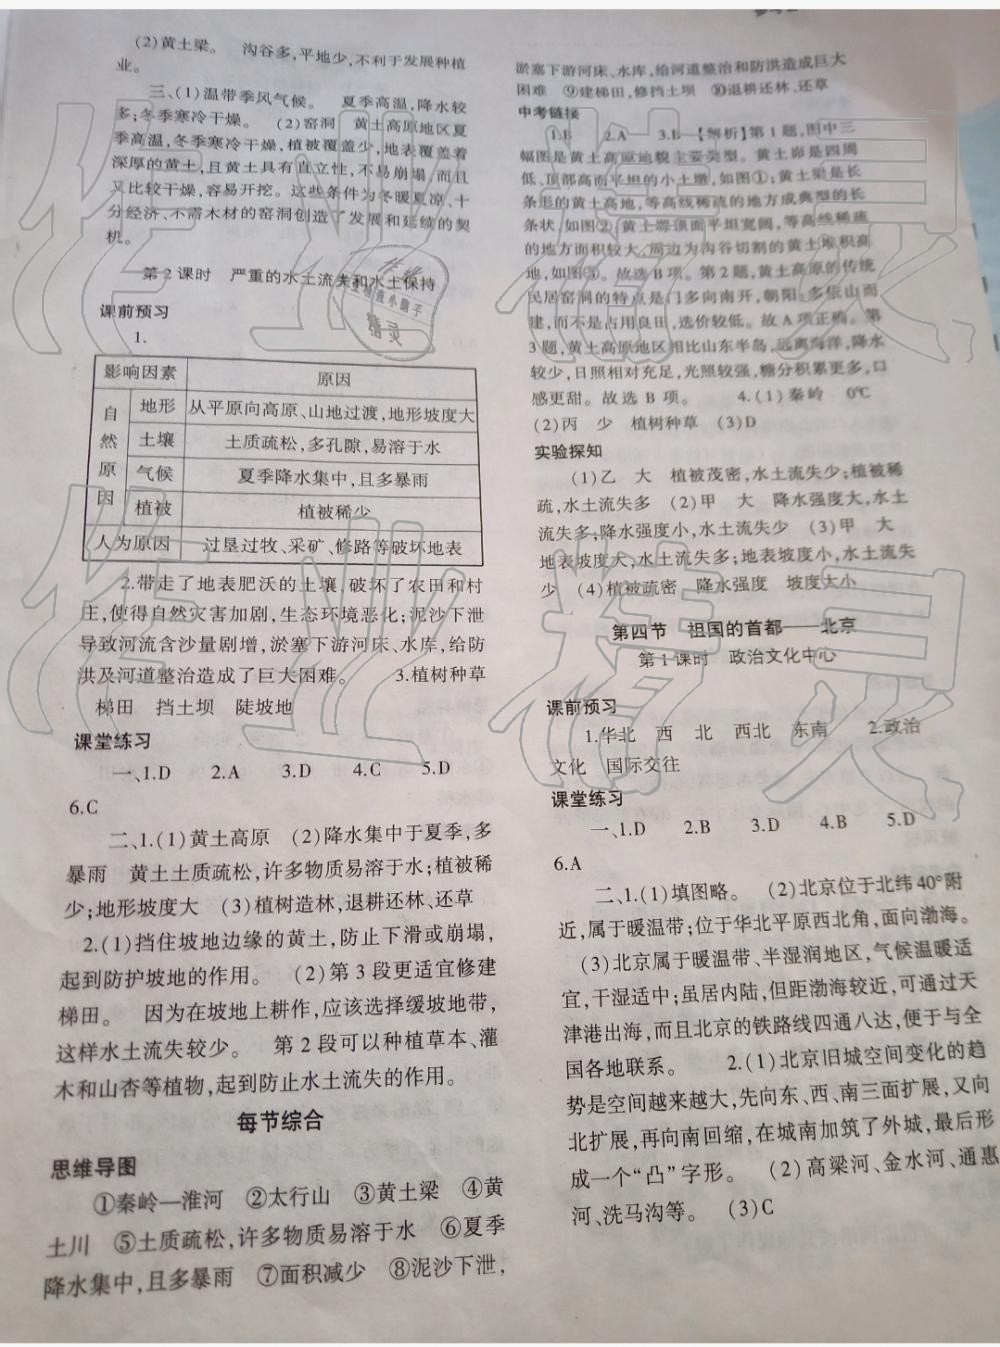 (2)黄土梁。 沟谷多,平地少,不利于发展种植
业。
三、(1)温带季风气候。 夏季高温,降水较
多;冬季寒冷干燥。 (2)窑洞 黄土高原地区夏
季高温,冬季寒冷干燥,植被覆盖少,地表覆盖着
深厚的黄土,且黄土具有直立性,不易崩塌,而且
又比较干燥,容易开挖。这些条件为冬暖夏凉、十
分经济、不需木材的窑洞创造了发展和延续的契
机。
第2课时 严重的水土流失和水土保持
课前预习
1.
影响因素 原因
自然原因 地形 从平原向高原、山地过渡,地形坡度大
土壤 土质疏松,多孔隙,易溶于水
气候 夏季降水集中,且多暴雨
植被 植被稀少
人为原因 过垦过牧、采矿、修路等破坏地表
2.带走了地表肥沃的土壤,破坏了农田和村
庄,使得自然灾害加剧,生态环境恶化;泥沙下泄
导致河流含沙量剧增,淤塞下游河床、水库,给防
洪及河道整治造成了巨大困难。 3.植树种草
梯田 挡土坝 陡坡地
课堂练习
一、1.D 2.A 3.D 4.C 5.D
6.C
二、1.(1)黄土高原 (2)降水集中于夏季,多
暴雨 黄土土质疏松,许多物质易溶于水;植被稀
少;地形坡度大 (3)植树造林,退耕还林、还草
2.(1)挡住坡地边缘的黄土,防止下滑或崩塌,
起到防护坡地的作用。 (2)第3段更适宜修建
梯田。 因为在坡地上耕作,应该选择缓坡地带,
这样水土流失较少。 第2段可以种植草本、灌
木和山杏等植物,起到防止水土流失的作用。
每节综合
思维导图
①秦岭—淮河 ②太行山 ③黄土梁 ④黄
土川 ⑤土质疏松,许多物质易溶于水 ⑥夏季
降水集中,且多暴雨 ⑦面积减少 ⑧泥沙下泄,
淤塞下游河床、水库,给河道整治和防洪造成巨大
困难 ⑨建梯田,修挡土坝 ⑩退耕还林、还草
中考链接
1.B 2.A 3.B 【解析】第1题,图中三
幅图是黄土高原地貌主要类型。黄土峁是四周
低、顶部高而平坦的小土墩,如图①;黄土梁是长
条形的黄土高地,等高线稀疏的地方成典型的长
条状,如图②;黄土塬顶面平坦宽阔,等高线稀疏
的地方面积较大,周边为沟谷切割的黄土堆积高
地,如图③。故选B项。第2题,黄土高原的传统
民居窑洞的特点是门多向南开,朝阳;多依山而
建,而不是占用良田,选价较低。故A项正确。第
3题,黄土高原地区相比山东半岛,远离海洋,降水
较少,日照相对充足,光照较强,糖分积累更多,口
感更甜。故选B项。 4.(1)秦岭 0℃
(2)丙 少 植树种草 (3)D
实验探知
(1)乙 大 植被茂密,水土流失少;植被稀
疏,水土流失多 (2)甲 大 降水强度大,水土
流失多;降水强度小,水土流失少 (3)甲 大
地表坡度大,水土流失多;地表坡度小,水土流失
少 (4)植被疏密 降水强度 坡度大小
第四节 祖国的首都——北京
第1课时 政治文化中心
课前预习
1.华北 西 北 西北 东南 2.政治
文化 国际交往
课堂练习
一、1.D 2.B 3.D 4.B 5.D
6.A
二、1.(1)填图略。 (2)北京位于北纬40°附
近,属于暖温带;位于华北平原西北角,面向渤海。
(3)北京属于暖温带、半湿润地区,气候温暖适
宜,干湿适中;虽居内陆,但距渤海较近,可通过天
津港出海,而且北京的铁路线四通八达,便于与全
国各地联系。 2.(1)北京旧城空间变化的趋
势是空间越来越大,先向东、西、南三面扩展,又向
北扩展,再向南回缩,在城南加筑了外城,最后形
成一个“凸”字形。 (2)高梁河、金水河、通惠
河、洗马沟等。 (3)C
作业精灵
作业精灵